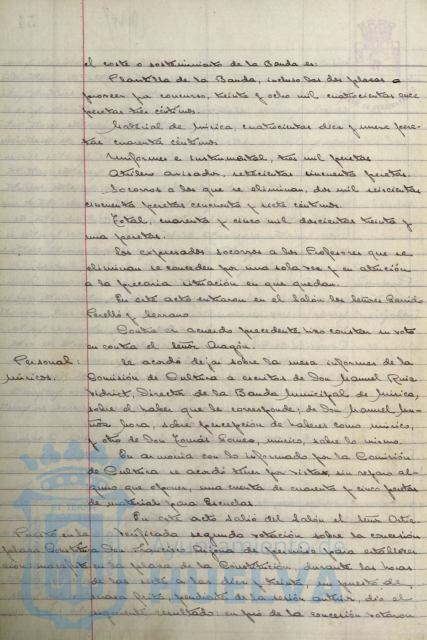 el coste o sostenimiento de la Banda es:
Plantilla de la Banda, incluso las dos plazas a
proveer por concurso, treinta y ocho mil cuatrocientas once
pesetas tres céntimos.
Material de música, cuatrocientas diez y nueve pese-
tas cuarenta céntimos
Uniformes e instrumental, tres mil pesetas
avisador, setecientas cincuenta pesetas.
Socorros a los que se eliminan, dos mil seiscientas
cincuenta pesetas cincuenta y siete céntimos.
Total, cuarenta y cinco mil doscientas treinta y
una pesetas.
Los expresados socorros a los Profesores que se
eliminan se conceden por una sola vez y en atención
a la precaria situación en que quedan.
En este acto entraron en el Salón los señores Garrido
Perelló y Serrano
Contra el acuerdo precedente hizo constar su voto
en contra el señor Aragón.
Personal:
músicos.
Se acordó dejar sobre la mesa informes de la
Comisión de Cultura a escritos de Don Manuel Ruiz
Vidriet, Director de la Banda Municipal de Música,
sobre el haber que le corresponde; de Don Manuel Mu-
ñoz Mora, sobre percepción de haberes como músico,
y otro de Don Tomás músico, sobre lo mismo.
En armonía con lo informado por la Comisión
de Cultura se acordó tener por vista, sin reparo al-
guno que oponer, una cuenta de cuarenta y cinco pesetas
de material para Escuelas
En este acto salió del Salón el señor
Puesto en la
plaza
Verificada segunda votación sobre la concesión
a Don Francisco de permiso para estable-
cer en la plaza de la Constitución, durante las horas
de las siete a las diez y treinta, un puesto de
masa frita, pendiente de la sesión anterior, dio el
siguiente resultado: en pró de la concesión votaron